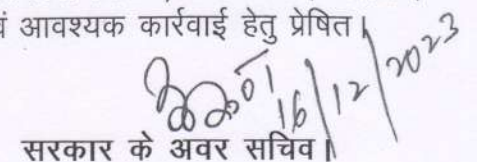 वं आवश्यक कार्रवाई हेतु प्रेषित।
16/12/2023
सरकार के अवर सचिव।